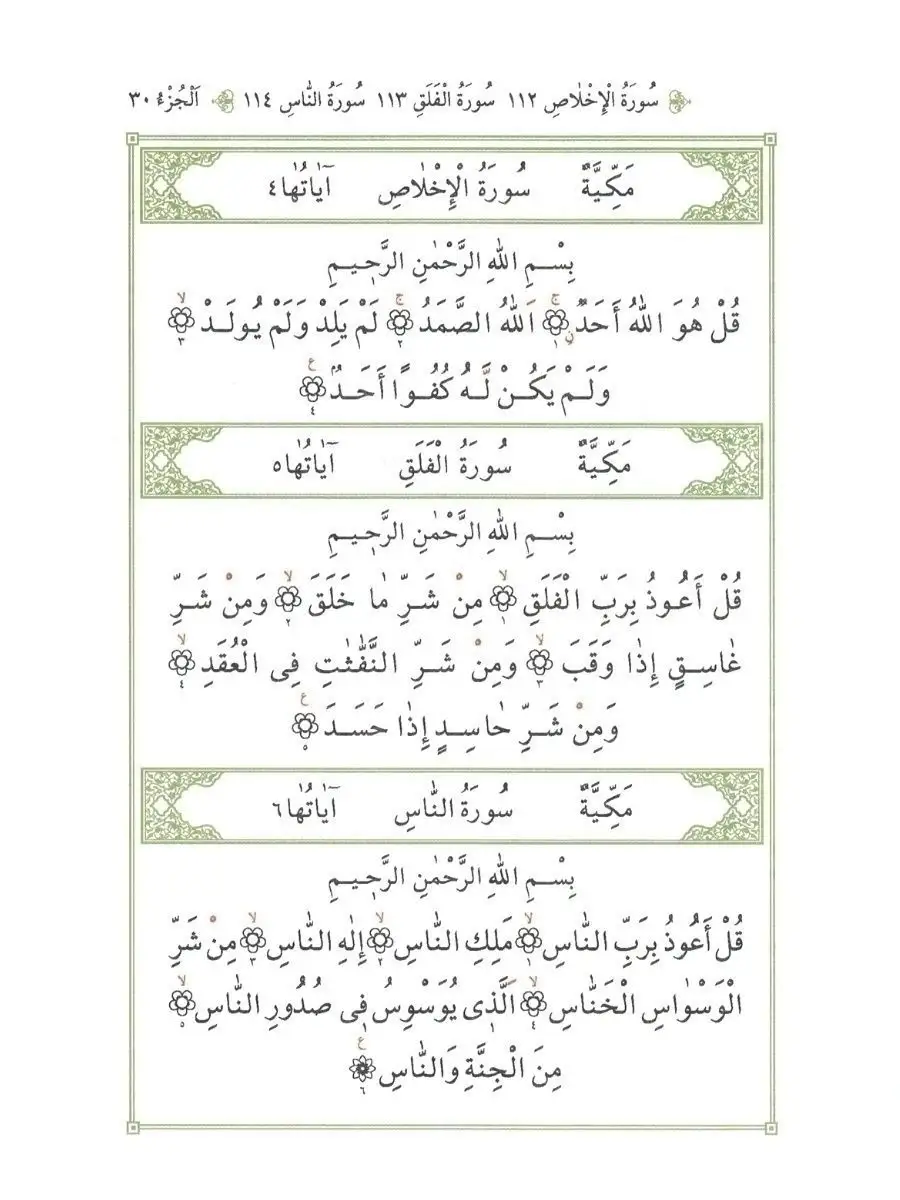 سُورَةُ الْإِخْلَاصِ ١١٢ سُورَةُ الْفَلَقِ ١١٣ سُورَةُ النَّاسِ ١١٤ اَلْجُزْءُ ٣٠
مَكِّيَّةٌ سُورَةُ الْإِخْلَاصِ آيَاتُهَا ٤
بِسْمِ اللّٰهِ الرَّحْمٰنِ الرَّحِيمِ
قُلْ هُوَ اللّٰهُ أَحَدٌ ۚ ١ اَللّٰهُ الصَّمَدُ ۚ ٢ لَمْ يَلِدْ وَلَمْ يُولَدْ ۙ ٣
وَلَمْ يَكُنْ لَّهُ كُفُوًا أَحَدٌ ٤ ع
مَكِّيَّةٌ سُورَةُ الْفَلَقِ آيَاتُهَا ٥
بِسْمِ اللّٰهِ الرَّحْمٰنِ الرَّحِيمِ
قُلْ أَعُوذُ بِرَبِّ الْفَلَقِ ۙ ١ مِنْ شَرِّ مَا خَلَقَ ۙ ٢ وَمِنْ شَرِّ
غَاسِقٍ إِذَا وَقَبَ ۙ ٣ وَمِنْ شَرِّ النَّفّٰثٰتِ فِى الْعُقَدِ ۙ ٤
وَمِنْ شَرِّ حَاسِدٍ إِذَا حَسَدَ ٥ ع
مَكِّيَّةٌ سُورَةُ النَّاسِ آيَاتُهَا ٦
بِسْمِ اللّٰهِ الرَّحْمٰنِ الرَّحِيمِ
قُلْ أَعُوذُ بِرَبِّ النَّاسِ ۙ ١ مَلِكِ النَّاسِ ۙ ٢ إِلٰهِ النَّاسِ ۙ ٣ مِنْ شَرِّ
الْوَسْوَاسِ الْخَنَّاسِ ۙ ٤ اَلَّذِى يُوَسْوِسُ فِى صُدُورِ النَّاسِ ۙ ٥
مِنَ الْجِنَّةِ وَالنَّاسِ ٦ ع